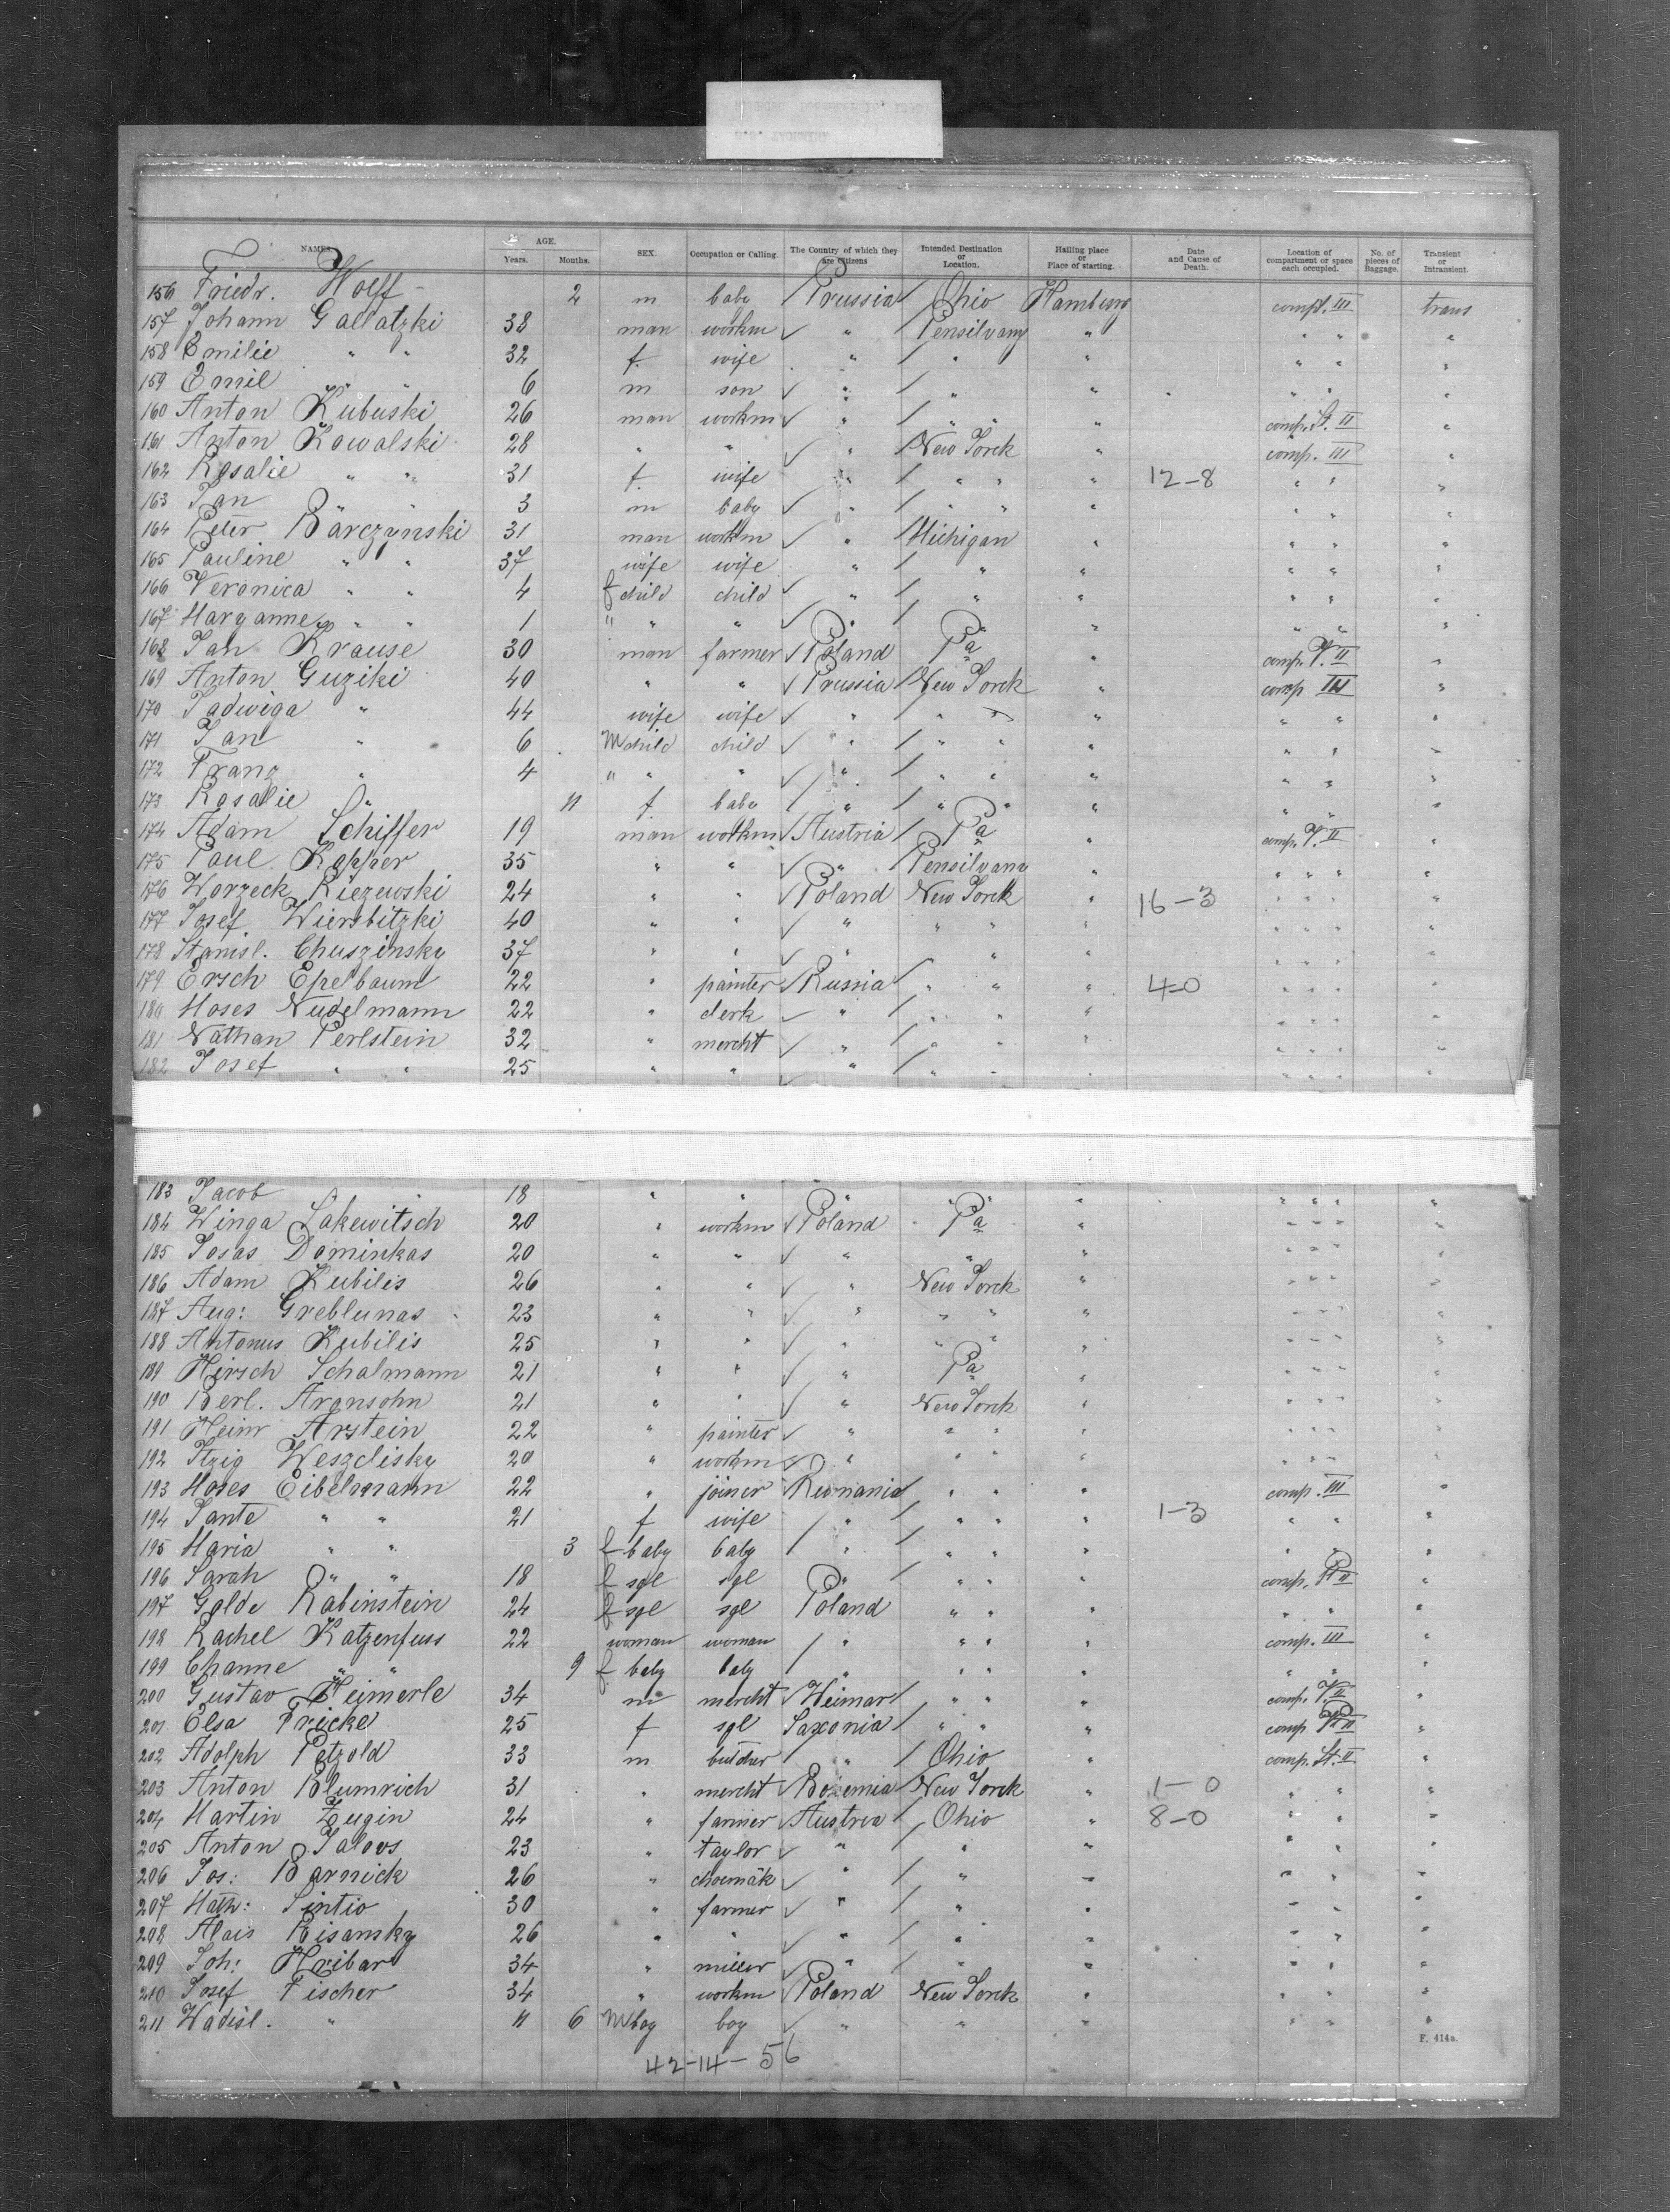 NAMES. AGE. Years. Months. SEX. Occupation or Calling. The Country of which they are Citizens Intended Destination or Location. Hailing place or Place of starting. Date and Cause of Death. Location of compartment or space each occupied. No. of pieces of Baggage. Transient or Intransient.
156 Friedr. Wolff 2 m baby Prussia Ohio Hamburg compt. III trans
157 Johann Gallatzki 38 man workm " Pensilvany " " " "
158 Emilie " " 32 f. wife " " " " " "
159 Emil " " 6 m son " " " " " "
160 Anton Kubuski 26 man workm " " " " comp. St. II "
161 Anton Kowalski 28 " " " New Yorck " comp. III "
162 Rosalie " " 31 f. wife " " " " 12-8 " " "
163 Jan " " 3 m baby " " " " " " "
164 Peter Barczynski 31 man workm " Michigan " " " "
165 Pauline " " 37 wife wife " " " " " "
166 Veronica " " 4 f child child " " " " " "
167 Maryanne " " 1 " " " " " " " " "
168 Jan Krause 30 man farmer Poland Pa " comp. V. II "
169 Anton Guziki 40 " " Prussia New Yorck " comp III "
170 Jadwiga " 44 wife wife " " " " " " "
171 Jan " 6 M child child " " " " " " "
172 Franz " 4 " " " " " " " " " "
173 Rosalie " 11 f baby " " " " " " "
174 Adam Schiffer 19 man workm Austria Pa " comp. V. II "
175 Paul Kopper 35 " " " Pensilvany " " " " "
176 Worzeck Riezewski 24 " " Poland New Yorck " 16-3 " " " "
177 Josef Wiersbitzki 40 " " " " " " " " " "
178 Stanisl. Chuszinsky 37 " " " " " " " " "
179 Ersch Epelbaum 22 " painter Russia " " " 4-0 " " " "
180 Moses Nudelmann 22 " clerk " " " " " " " "
181 Nathan Perlstein 32 " mercht " " " " " " " "
182 Josef " " 25 " " " " " " " " " "
183 Jacob " " 18 " " " " " " " " " "
184 Winga Sakewitsch 20 " workm Poland Pa " " " " "
185 Josas Dominkas 20 " " " " " " " " "
186 Adam Kubilis 26 " " " New Yorck " " " " "
187 Aug: Greblunas 23 " " " " " " " " " "
188 Antonus Kubilis 25 " " " " " " " " " "
189 Hirsch Schalmann 21 " " " Pa " " " " "
190 Berl. Aronsohn 21 " " " New Yorck " " " " "
191 Heinr Arstein 22 " painter " " " " " " " "
192 Itzig Weszdisky 20 " workm " " " " " " " "
193 Moses Eibelmann 22 " joiner Rumania " " " comp. III "
194 Tante " " 21 f wife " " " " 1-3 " " "
195 Maria " " 3 f baby baby " " " " " " "
196 Sarah " " 18 f sgl sgl " " " " comp. "
197 Golde Rabinstein 24 f sgl sgl Poland " " " " " "
198 Rachel Katzenfuss 22 woman woman " " " " comp. III "
199 Channe " " 9 f baby baby " " " " " " "
200 Gustav Heimerle 34 m mercht Weimar " " " comp. V. II "
201 Elsa Fricke 25 f sgl Saxonia " " " comp "
202 Adolph Petzold 33 m butcher " Ohio " comp. St. II "
203 Anton Blumrich 31 " mercht Bohemia New Yorck " 1-0 " " "
204 Martin Zugin 24 " farmer Austria Ohio " 8-0 " " "
205 Anton Jaloos 23 " taylor " " " " " "
206 Jos: Barnick 26 " choemäk " " " " " "
207 Math: Sintio 30 " farmer " " " " " "
208 Alois Risansky 26 " " " " " " " "
209 Joh: Hribar 34 " miller " " " " " "
210 Josef Fischer 34 " workm Poland New Yorck " " " "
211 Wadisl. " 11 6 M boy boy " " " " " "
F. 414a.
42-14-56